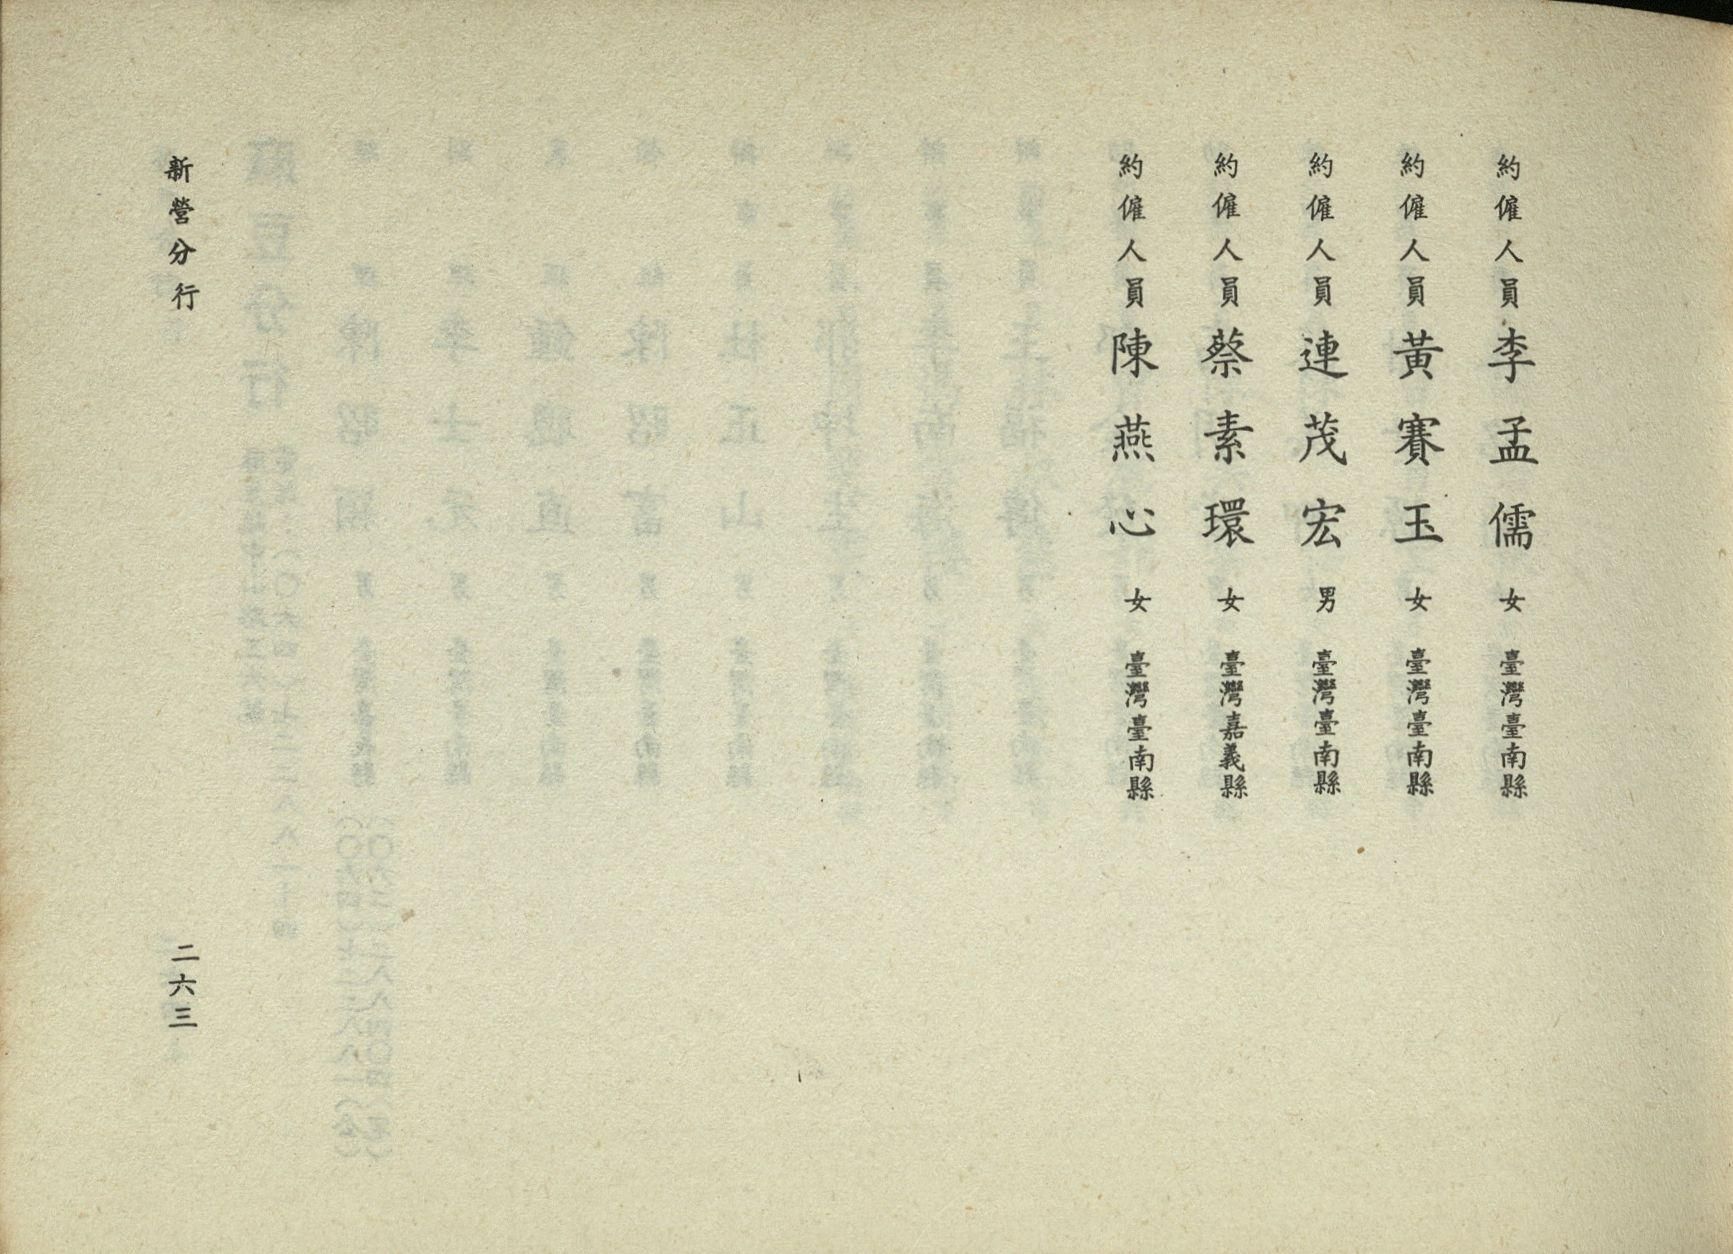 約僱人員李孟儒女臺灣臺南縣
約僱人員黃賽玉女臺灣臺南縣
約僱人員連茂宏男臺灣臺南縣
約僱人員蔡素環女臺灣嘉義縣
約僱人員陳燕心女臺灣臺南縣
新營分行
二六三